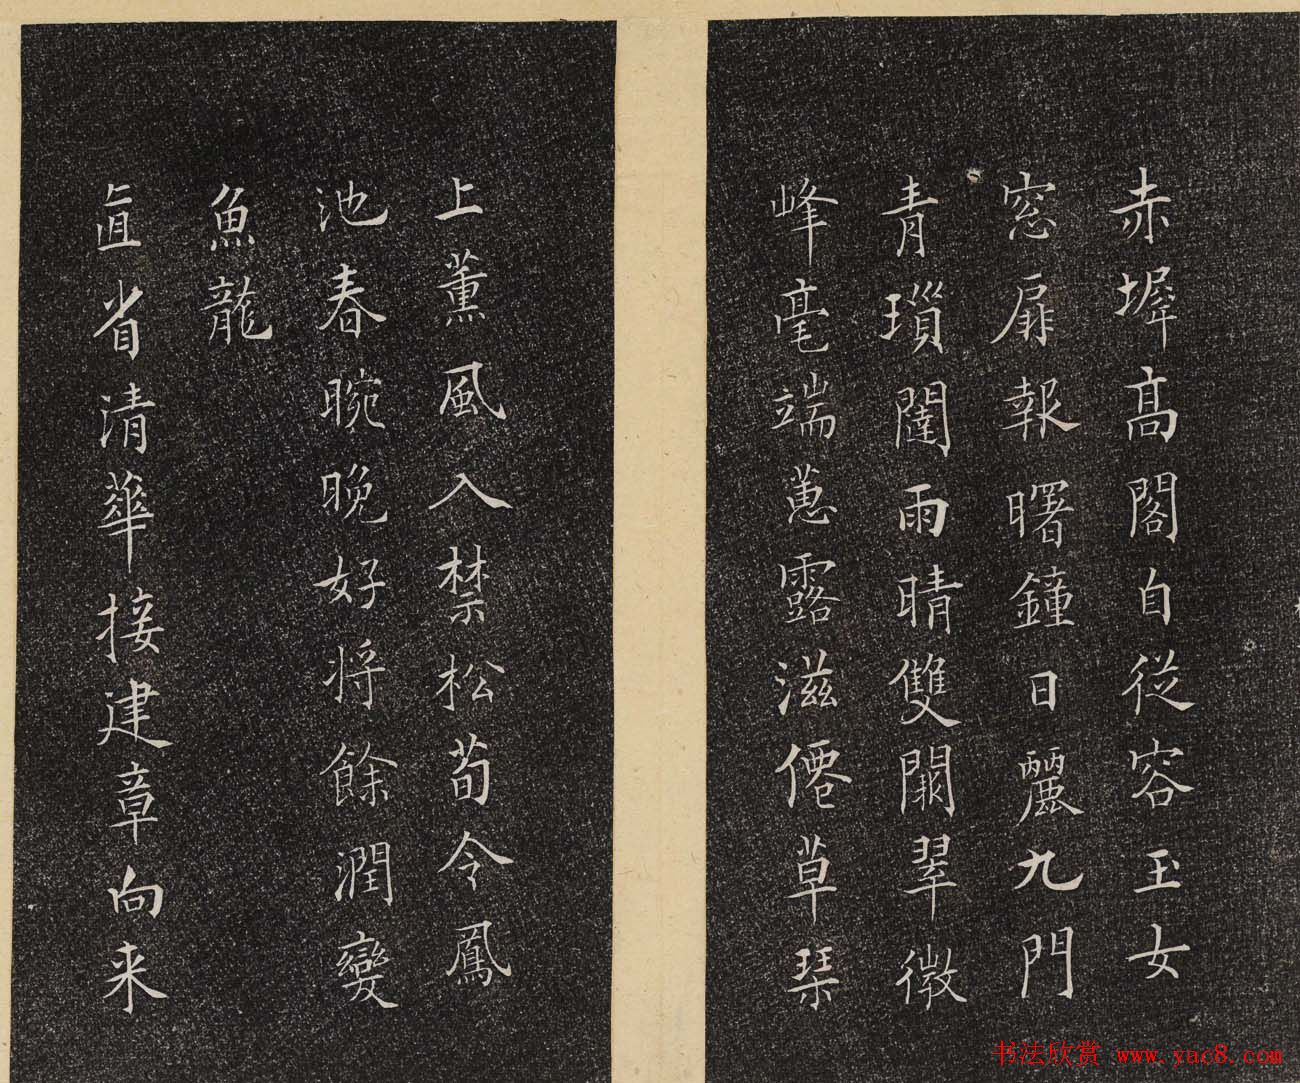 赤墀高閣自從容玉女
窓扉報曙鐘日麗九門
青瑣闥雨晴雙闕翠微
峰毫端蕙露滋僊草琹
上薰風入禁松荀令鳳
池春晼晚好将餘潤變
魚龍
直省清華接建章向来
书法欣赏 www.yac8.com